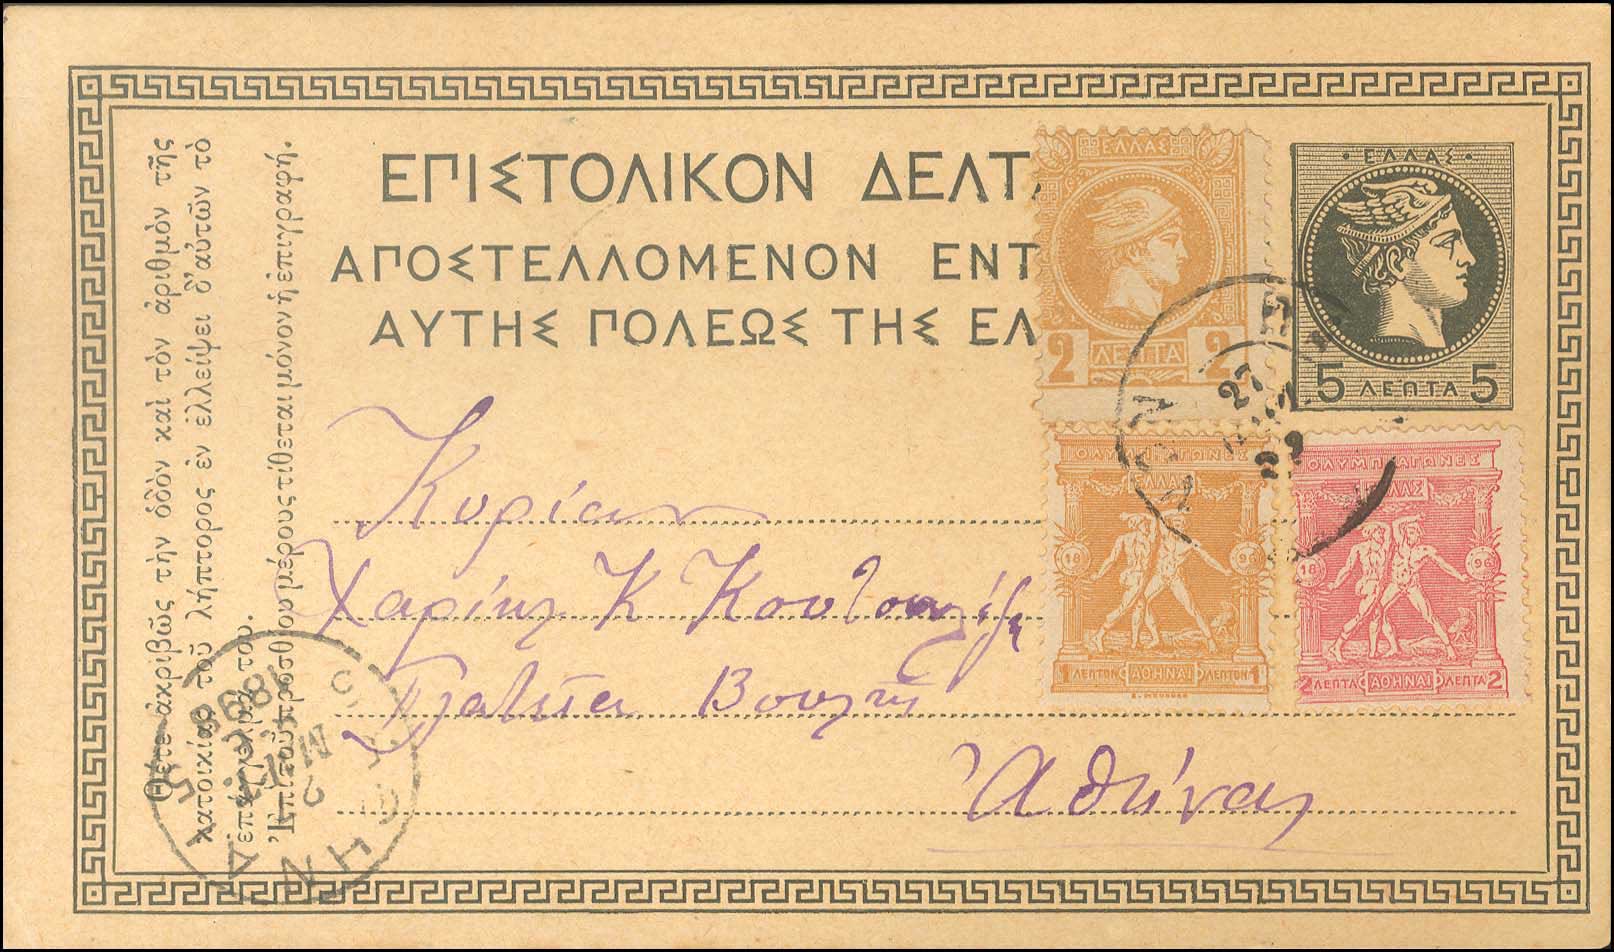 ΕΠΙΣΤΟΛΙΚΟΝ ΔΕΛΤ
ΑΠΟΣΤΕΛΛΟΜΕΝΟΝ ΕΝΤ
ΑΥΤΗΣ ΠΟΛΕΩΣ ΤΗΣ ΕΛ
Θέτε ἀκριβῶς τὴν ὁδὸν καὶ τὸν ἀριθμὸν τῆς
κατοικίας τοῦ λήπτορος ἐν ἐλλείψει δ' αὐτῶν τὸ
ἐπάγγελμά του.
Ἐπὶ τοῦ προσθίου μέρους τίθεται μόνον ἡ ἐπιγραφή.
ΕΛΛΑΣ
2 ΛΕΠΤΑ 2
· ΕΛΛΑΣ ·
5 ΛΕΠΤΑ 5
ΟΛΥΜΠ. ΑΓΩΝΕΣ
ΕΛΛΑΣ
18 96
1 ΛΕΠΤΟΝ ΑΘΗΝΑΙ ΛΕΠΤΟΝ 1
ΟΛΥΜΠ. ΑΓΩΝΕΣ
ΕΛΛΑΣ
18 96
2 ΛΕΠΤΑ ΑΘΗΝΑΙ ΛΕΠΤΑ 2
27
Κυρίαν
Χαρίκλ Κ
Πλατεῖα Βουλῆς
Ἀθήνας